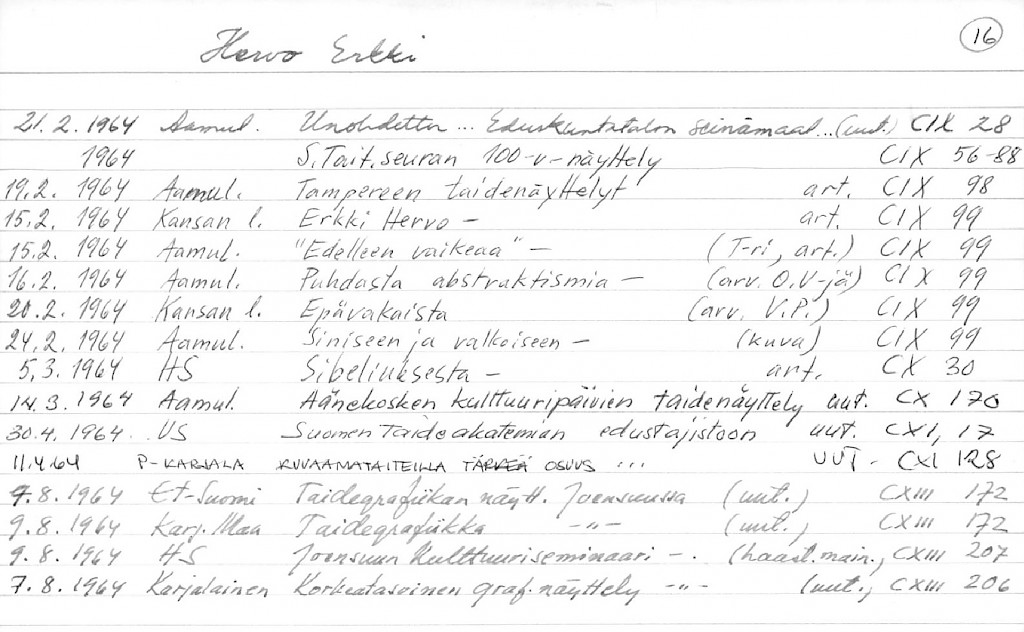 16
Hervo Erkki
21.2.1964 Aamul. Unohdettu ... Eduskuntatalon seinämaal... (uut.) CIX 28
1964 S.Tait.seuran 100-v-näyttely CIX 56-88
19.2. 1964 Aamul. Tampereen taidenäyttelyt art. CIX 98
15.2. 1964 Kansan l. Erkki Hervo - art. CIX 99
15.2. 1964 Aamul. "Edelleen vaikeaa" - (T-ri, art.) CIX 99
16.2. 1964 Aamul. Puhdasta abstraktismia - (arv. O.V-jä) CIX 99
20.2. 1964 Kansan l. Epävakaista (arv. V.P.) CIX 99
24.2. 1964 Aamul. Siniseen ja valkoiseen - (kuva) CIX 99
5.3. 1964 HS Sibeliuksesta - art. CX 30
14.3. 1964 Aamul. Äänekosken kulttuuripäivien taidenäyttely uut. CX 170
30.4. 1964. US Suomen Taideakatemian edustajistoon uut. CXI, 17
11.4.64 P-KARJALA KUVAAMATAITEILLA TÄRKEÄ OSUUS ... UUT - CXI 128
9.8. 1964 Et-Suomi Taidegrafiikan näytt. Joensuussa (uut.) CXIII 172
9.8. 1964 Karj. Maa Taidegrafiikka -"- (uut., CXIII 172
9.8. 1964 HS Joensuun Kulttuuriseminaari -. (haast. main., CXIII 207
7.8. 1964 Karjalainen Korkeatasoinen graf. näyttely -"- (uut., CXIII 206